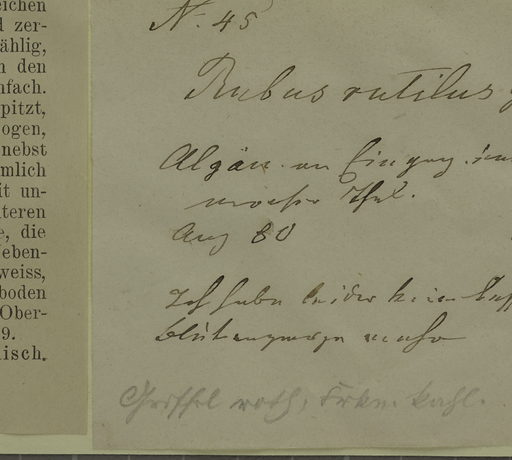 eichen
d zer-
ählig,
n den
nfach.
pitzt,
ogen,
nebst
mlich
it un-
teren
e, die
eben-
weiss,
boden
Ober-
9.
isch.
N. 45
Rubus rutilus
Algäu. am Eingang
Aug 80
Ich habe leider kein
mehr
Griffel roth, kahl.